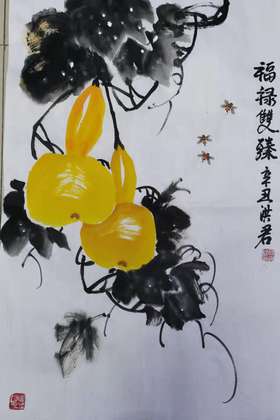 福禄雙臻
辛丑洪君